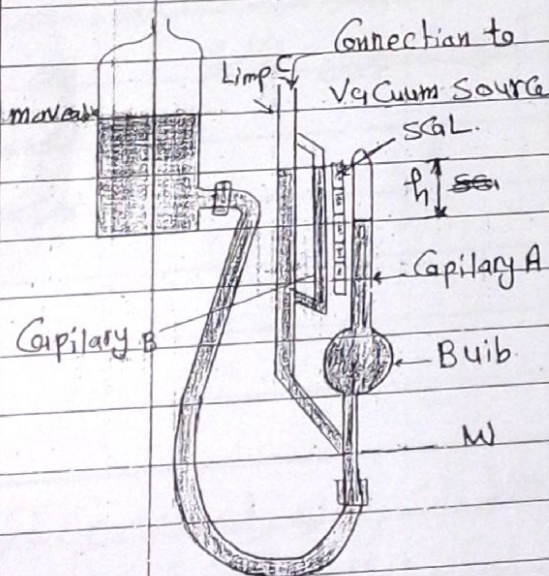 Connection to
Limp C
Vacuum Source
moveable
SCGL.
h
Capilary A
Capilary B
Buib
M